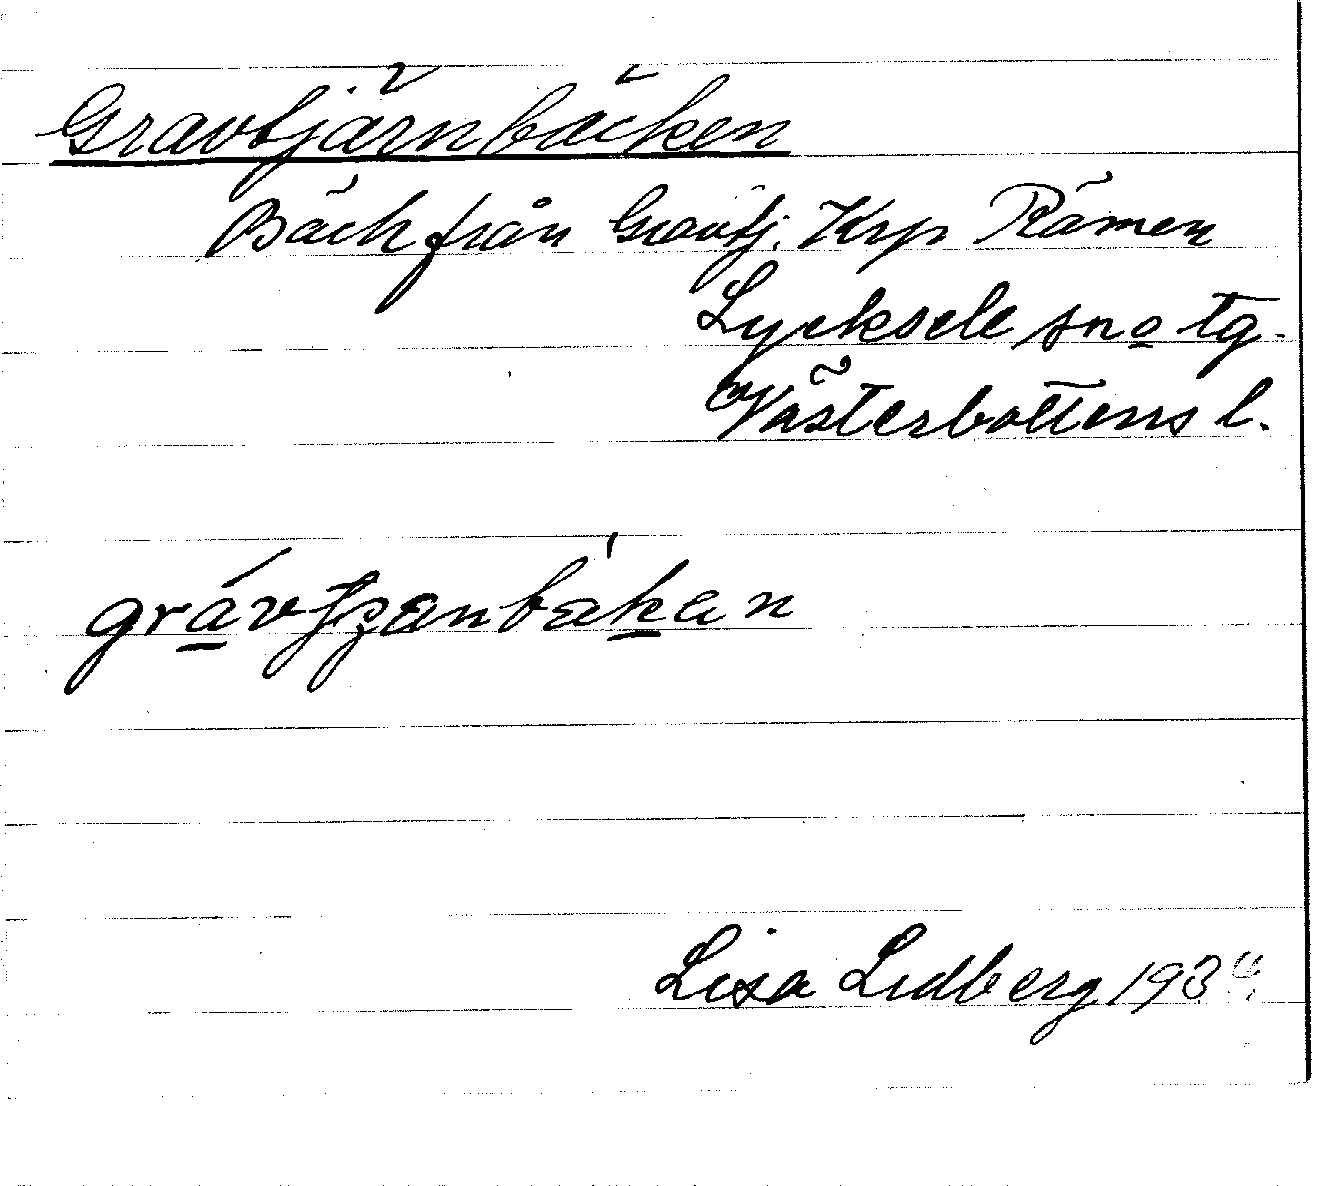 Gravtjärnbäcken
Bäck från Gravtj. Krp Rämen
Lycksele sn o tg.
Västerbottens l.
Lisa Lidberg 193